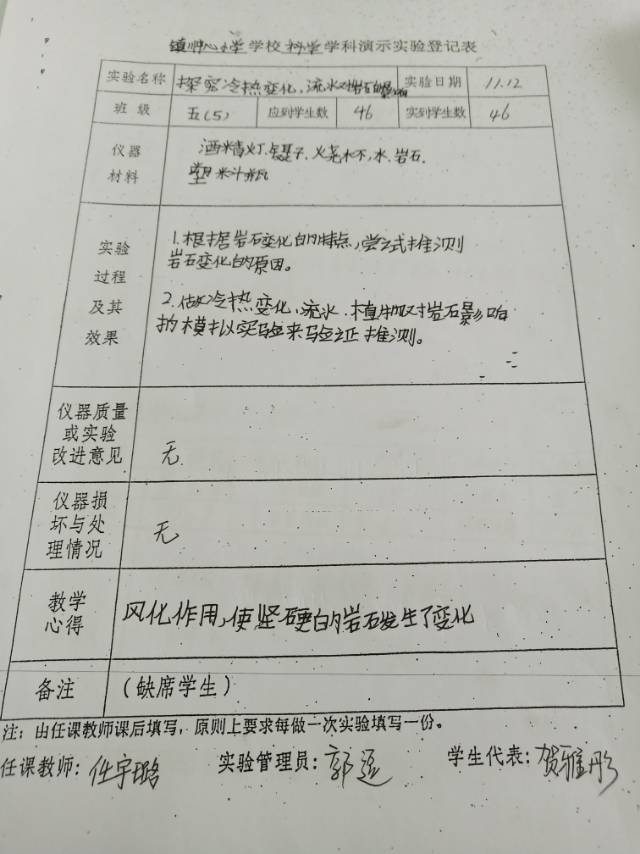 镇中心小学学校科学学科演示实验登记表
实验名称 探究冷热变化，流水对岩石的影响 实验日期 11.12
班级 五(5) 应到学生数 46 实到学生数 46
仪器 酒精灯.镊子.火柴.烧杯,水.岩石.
材料 塑料瓶
实验 1.根据岩石变化的特点,尝试推测
过程 岩石变化的原因。
及其 2.做冷热变化,流水.植物对岩石影响
效果 的模拟实验来验证推测。
仪器质量
或实验
改进意见 无.
仪器损
坏与处
理情况 无
教学
心得 风化作用,使坚硬的岩石发生了变化
备注 （缺席学生）
注：由任课教师课后填写，原则上要求每做一次实验填写一份。
任课教师：任宇璐 实验管理员：郭运 学生代表：贺雅彤